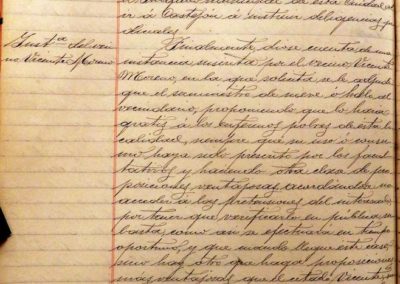 Inst.ª del veci
no Vicente Moreno
ir á Castejón á instruir diligencias ju
diciales.
Finalmente, dióse cuenta de una
instancia suscrita por el vecino Vicente
Moreno, en la que solicita se le adjudi
que el suministro de nieve ó hielo al
vecindario, proponiendo que lo hará
gratis á los enfermos pobres de esta lo
calidad, siempre que su uso ó consu
mo haya sido prescrito por los facul
tativos y haciendo otra clase de pro
posiciones ventajosas acordándose no
acceder á las pretensiones del interesado
por tener que verificarlo en pública su
basta, como así se efectuará en tiempo
oportuno, y que cuando llegue este caso,
sino hay otro que haga proposiciones
más ventajosas que el citado Vicente, se